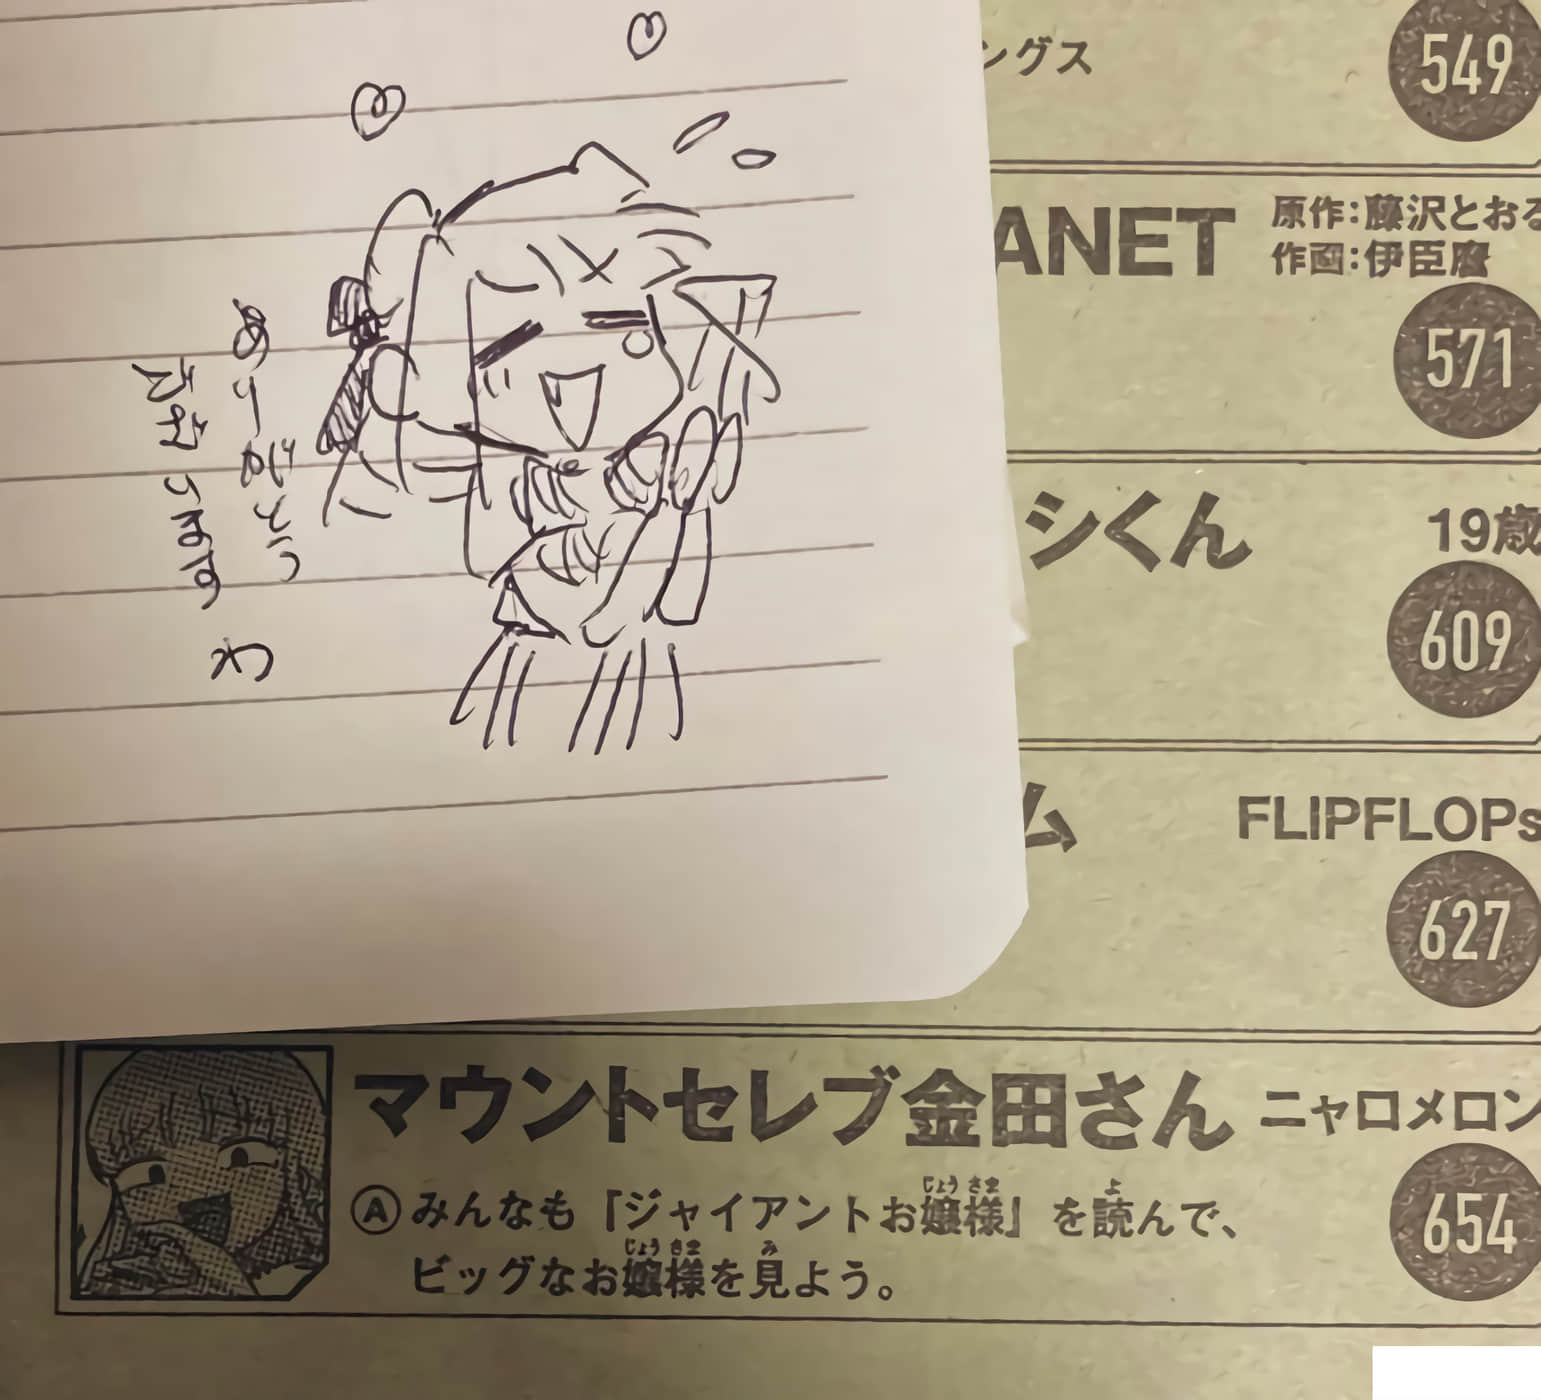 ありがとう
ございますわ
ングス
549
ANET
原作:藤沢とおる
作画:伊臣麿
571
シくん
19歳
609
ム
FLIPFLOPs
627
マウントセレブ金田さん
ニャロメロン
Ⓐみんなも『ジャイアントお嬢様』を読んで、
じょうさま
よ
ビッグなお嬢様を見よう。
じょうさま
み
654